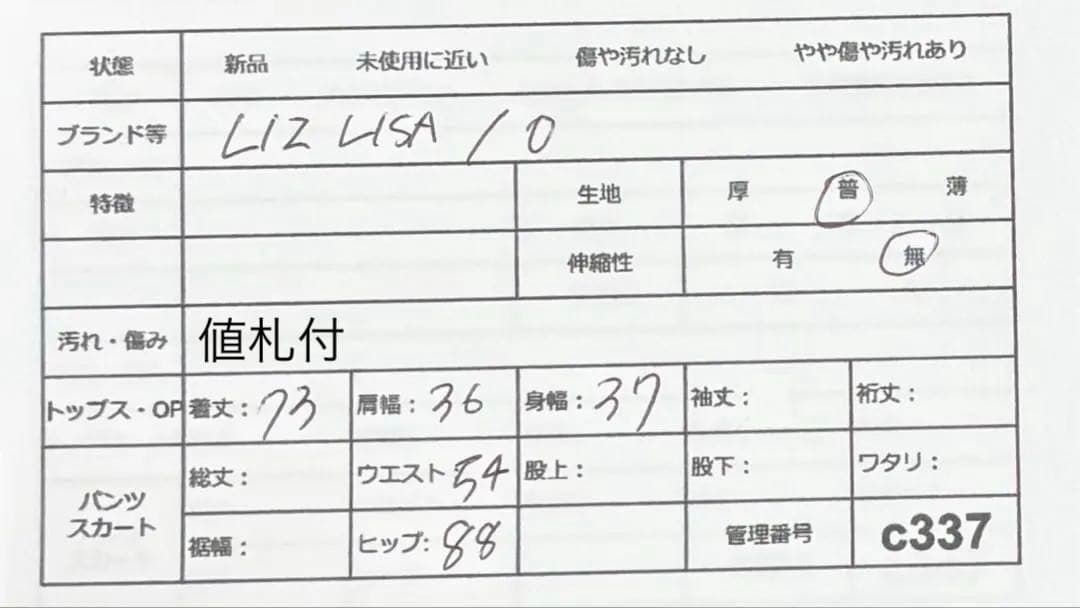 状態 新品 未使用に近い 傷や汚れなし やや傷や汚れあり
ブランド等 LIZ LISA / 0
特徴 生地 厚 普 薄
伸縮性 有 無
汚れ・傷み 値札付
トップス・OP 着丈：73 肩幅：36 身幅：37 袖丈： 裄丈：
パンツ スカート
総丈： ウエスト 54 股上： 股下： ワタリ：
裾幅： ヒップ：88 管理番号 c337